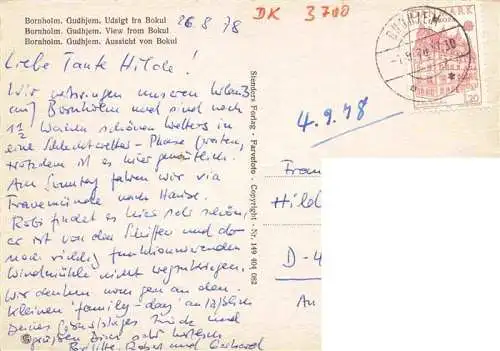 Bornholm. Gudhjem. Udsigt fra Bokul
Bornholm. Gudhjem. View from Bokul
Bornholm. Gudhjem. Aussicht von Bokul
26.8.78
DK 3700
Liebe Tante Hilde!
Wir verbringen unseren Urlaub
auf Bornholm und sind nach
1 1/2 Wochen schönen Wetters in
eine Schlechtwetter-Phase geraten,
trotzdem ist es hier gemütlich.
Am Sonntag fahren wir via
Travemünde nach Hause.
Robi findet es hier sehr schön,
er ist von den Schiffen und der
noch richtig funktionierenden
Windmühle nicht wegzukriegen.
Wir denken noch gern an den
kleinen "family-day" anläßlich
Deines Geburtstages zurück und
grüßen Dich sehr herzlich
Brigitte, Robert und Gerhard
Stenders Forlag - Farvefoto - Copyright - Nr. 149 404 082
4.9.78
Frau
Hild
D-4
An
MARK
120